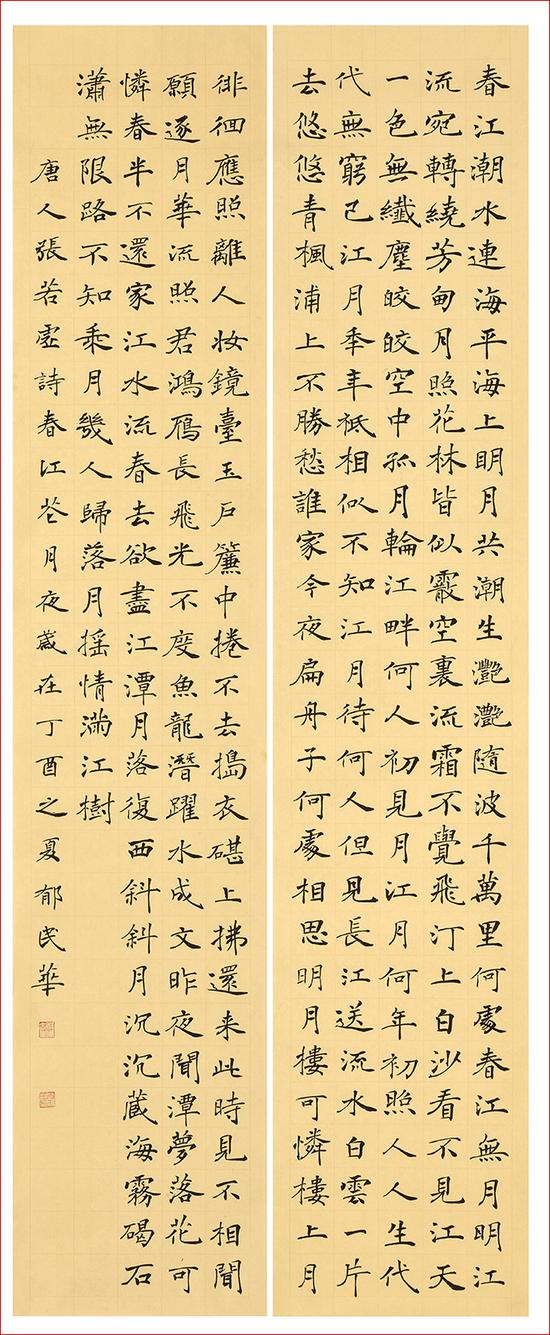 春江潮水連海平海上明月共潮生灧灧隨波千萬里何處春江無月明江
流宛轉繞芳甸月照花林皆似霰空裏流霜不覺飛汀上白沙看不見江天
一色無纖塵皎皎空中孤月輪江畔何人初見月江月何年初照人人生代
代無窮已江月秊年祗相似不知江月待何人但見長江送流水白雲一片
去悠悠青楓浦上不勝愁誰家今夜扁舟子何處相思明月樓可憐樓上月
徘徊應照離人妝鏡臺玉戶簾中捲不去搗衣碪上拂還来此時見不相聞
願逐月華流照君鴻鴈長飛光不度魚龍潛躍水成文昨夜聞潭夢落花可
憐春半不還家江水流春去欲盡江潭月落復西斜斜月沉沉蔵海霧碣石
瀟無限路不知乘月幾人歸落月搖情滿江樹
唐人張若虛詩春江花月夜歲在丁酉之夏郁民華